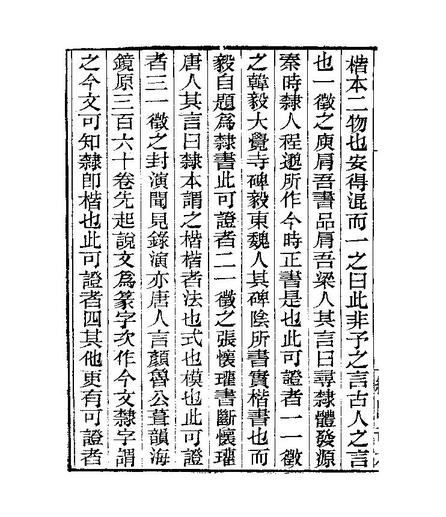 楷本二物也安得混而一之曰此非予之言古人之言
也一徵之庾肩吾書品肩吾梁人其言曰尋隸體發源
秦時隸人程邈所作今時正書是也此可證者一一徵
之韓毅大覺寺碑毅東魏人其碑陰所書實楷書也而
毅自題爲隸書此可證者二一徵之張懷瓘書斷懷瓘
唐人其言曰隸本謂之楷楷者法也式也模也此可證
者三一徵之封演聞見錄演亦唐人言顏魯公葺韻海
鏡原三百六十卷先起說文爲篆字次作今文隸字謂
之今文可知隸卽楷也此可證者四其他更有可證者